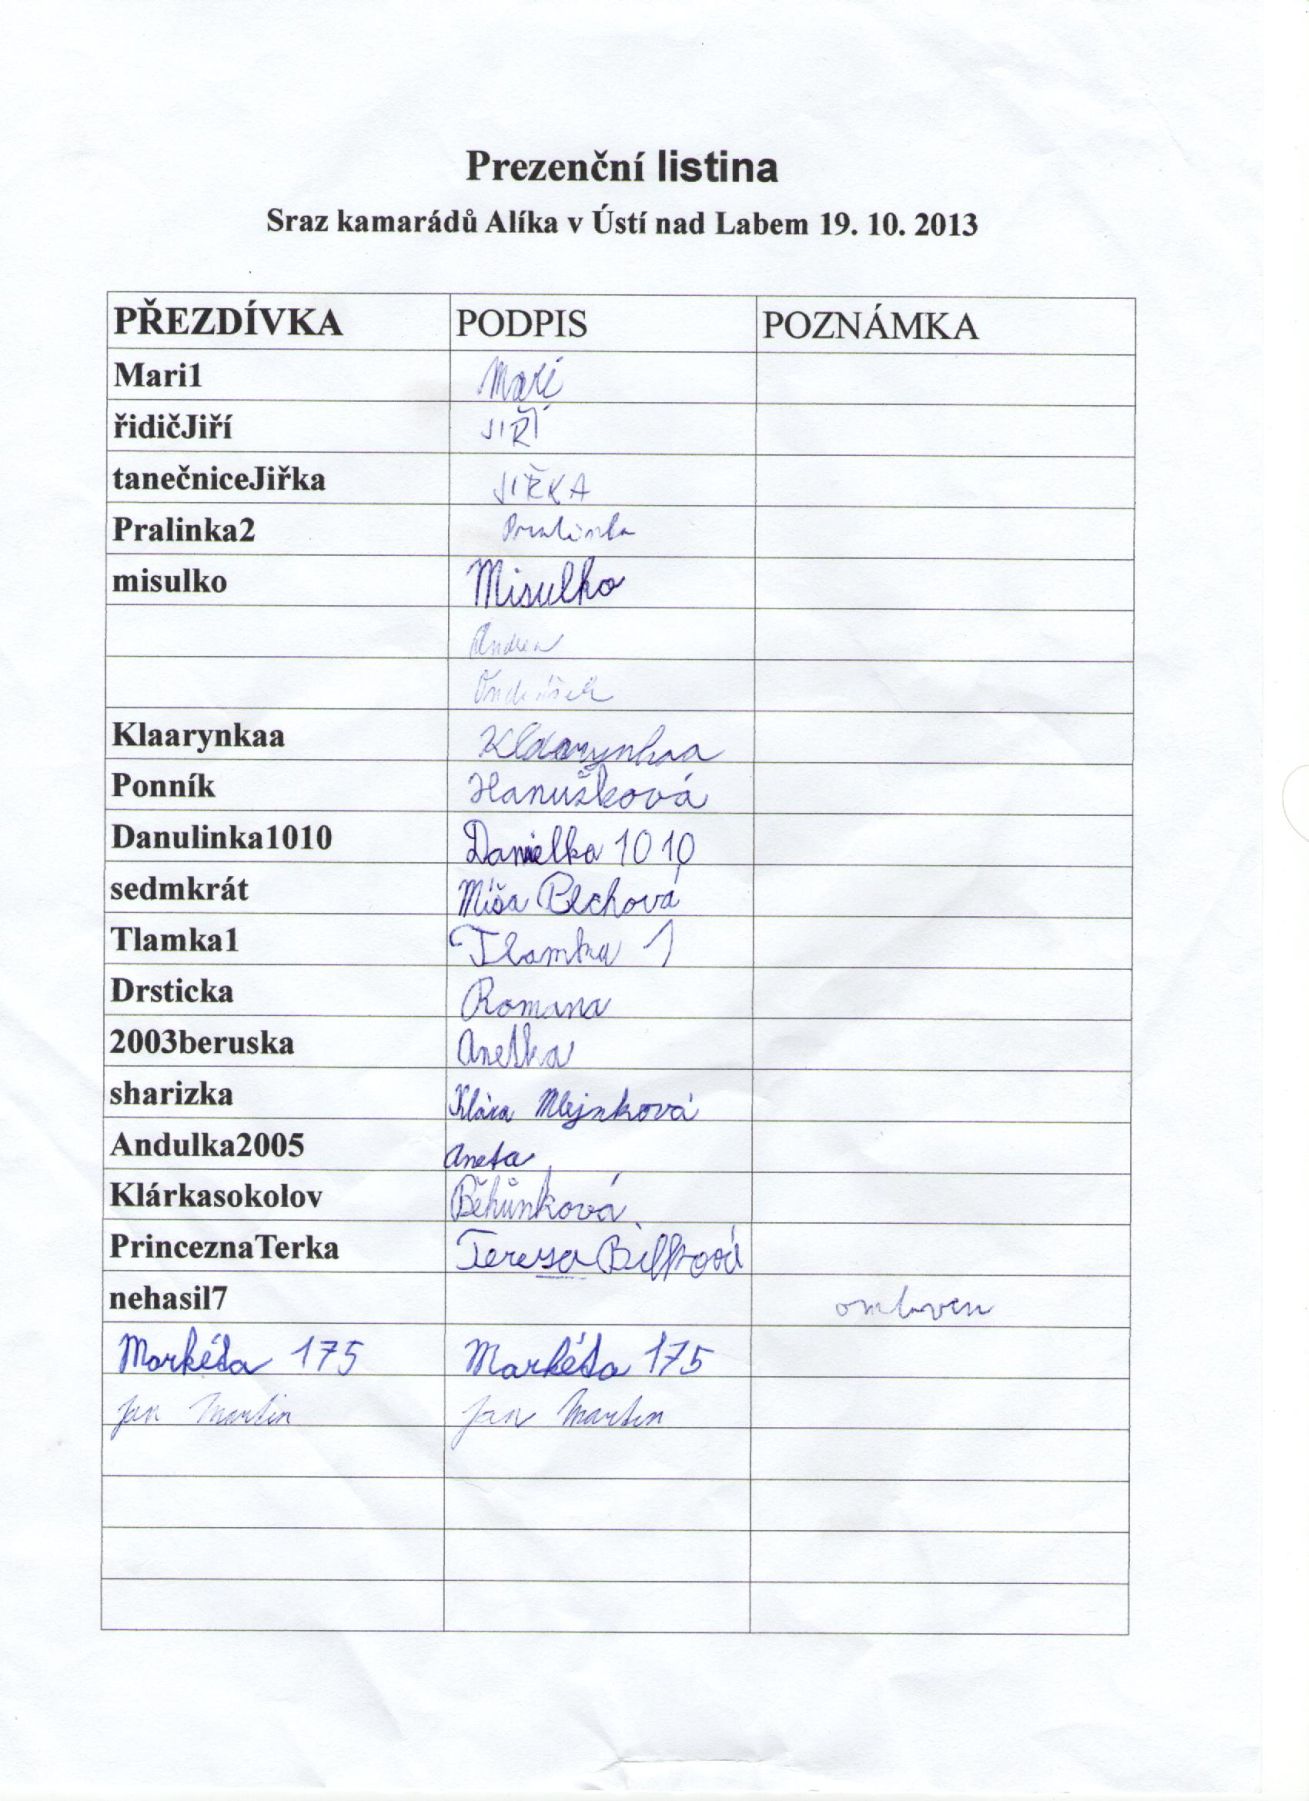 Prezenční listina
Sraz kamarádů Alíka v Ústí nad Labem 19. 10. 2013
PŘEZDÍVKA PODPIS POZNÁMKA
Mari1 Mari
řidičJiří JIŘÍ
tanečniceJiřka JIŘKA
Pralinka2 Pralinka
misulko Misulko
Andrea
Klaarynkaa Klaarynkaa
Ponník Hanušková
Danulinka1010 Danielka 1010
sedmkrát Míša Plchová
Tlamka1 Tlamka 1
Drsticka Romana
2003beruska Anetka
sharizka Klára Mlejnková
Andulka2005 Aneta
Klárkasokolov Běhůnková
PrinceznaTerka Tereza
nehasil7 omluven
Markéta 175 Markéta 175
Jan Martin Jan Martin